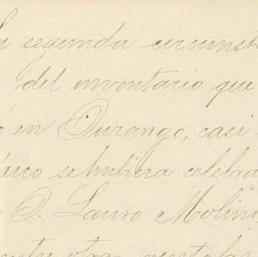 la segunda circunst
del inventario que
en Durango, casi
se hubiera celebra
D. Lauro Molin
entre otras